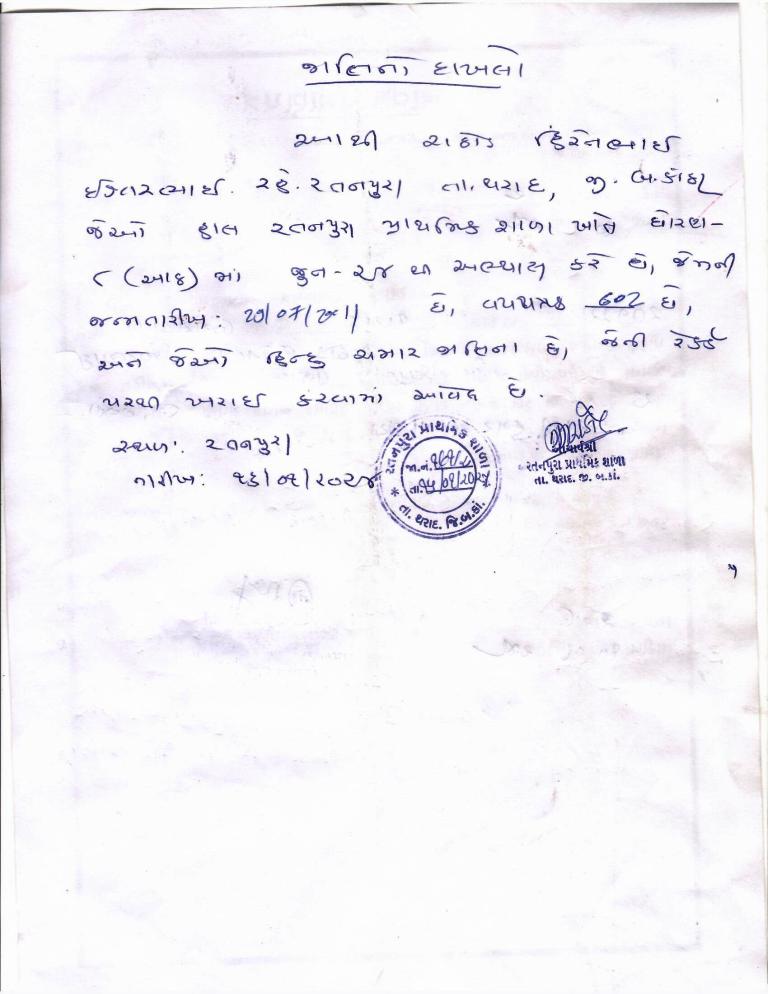 જાતિનો દાખલો
આથી રાઠોડ હિરેનભાઈ
ઈશ્વરભાઈ. રહે. રતનપુરા તા. થરાદ, જી. બ.કાંઠા
જેઓ હાલ રતનપુરા પ્રાથમિક શાળા ખાતે ધોરણ-
૮ (આઠ) માં જુન- થી અભ્યાસ કરે છે, જેમની
જન્મતારીખ: છે, વયપત્રક 602 છે,
અને જેઓ હિન્દુ ચમાર જાતિના છે, જેની રેકર્ડ
પરથી ખરાઈ કરવામાં આવેલ છે.
સ્થળ: રતનપુરા
તારીખ: ૧૬/૦૧/૨૦૨૪
રતનપુરા પ્રાથમિક શાળા
જા.નં.
તા.
* તા. થરાદ. જિ.બ.કાં. *
આચાર્યશ્રી
રતનપુરા પ્રાથમિક શાળા
તા. થરાદ. જી. બ.કાં.